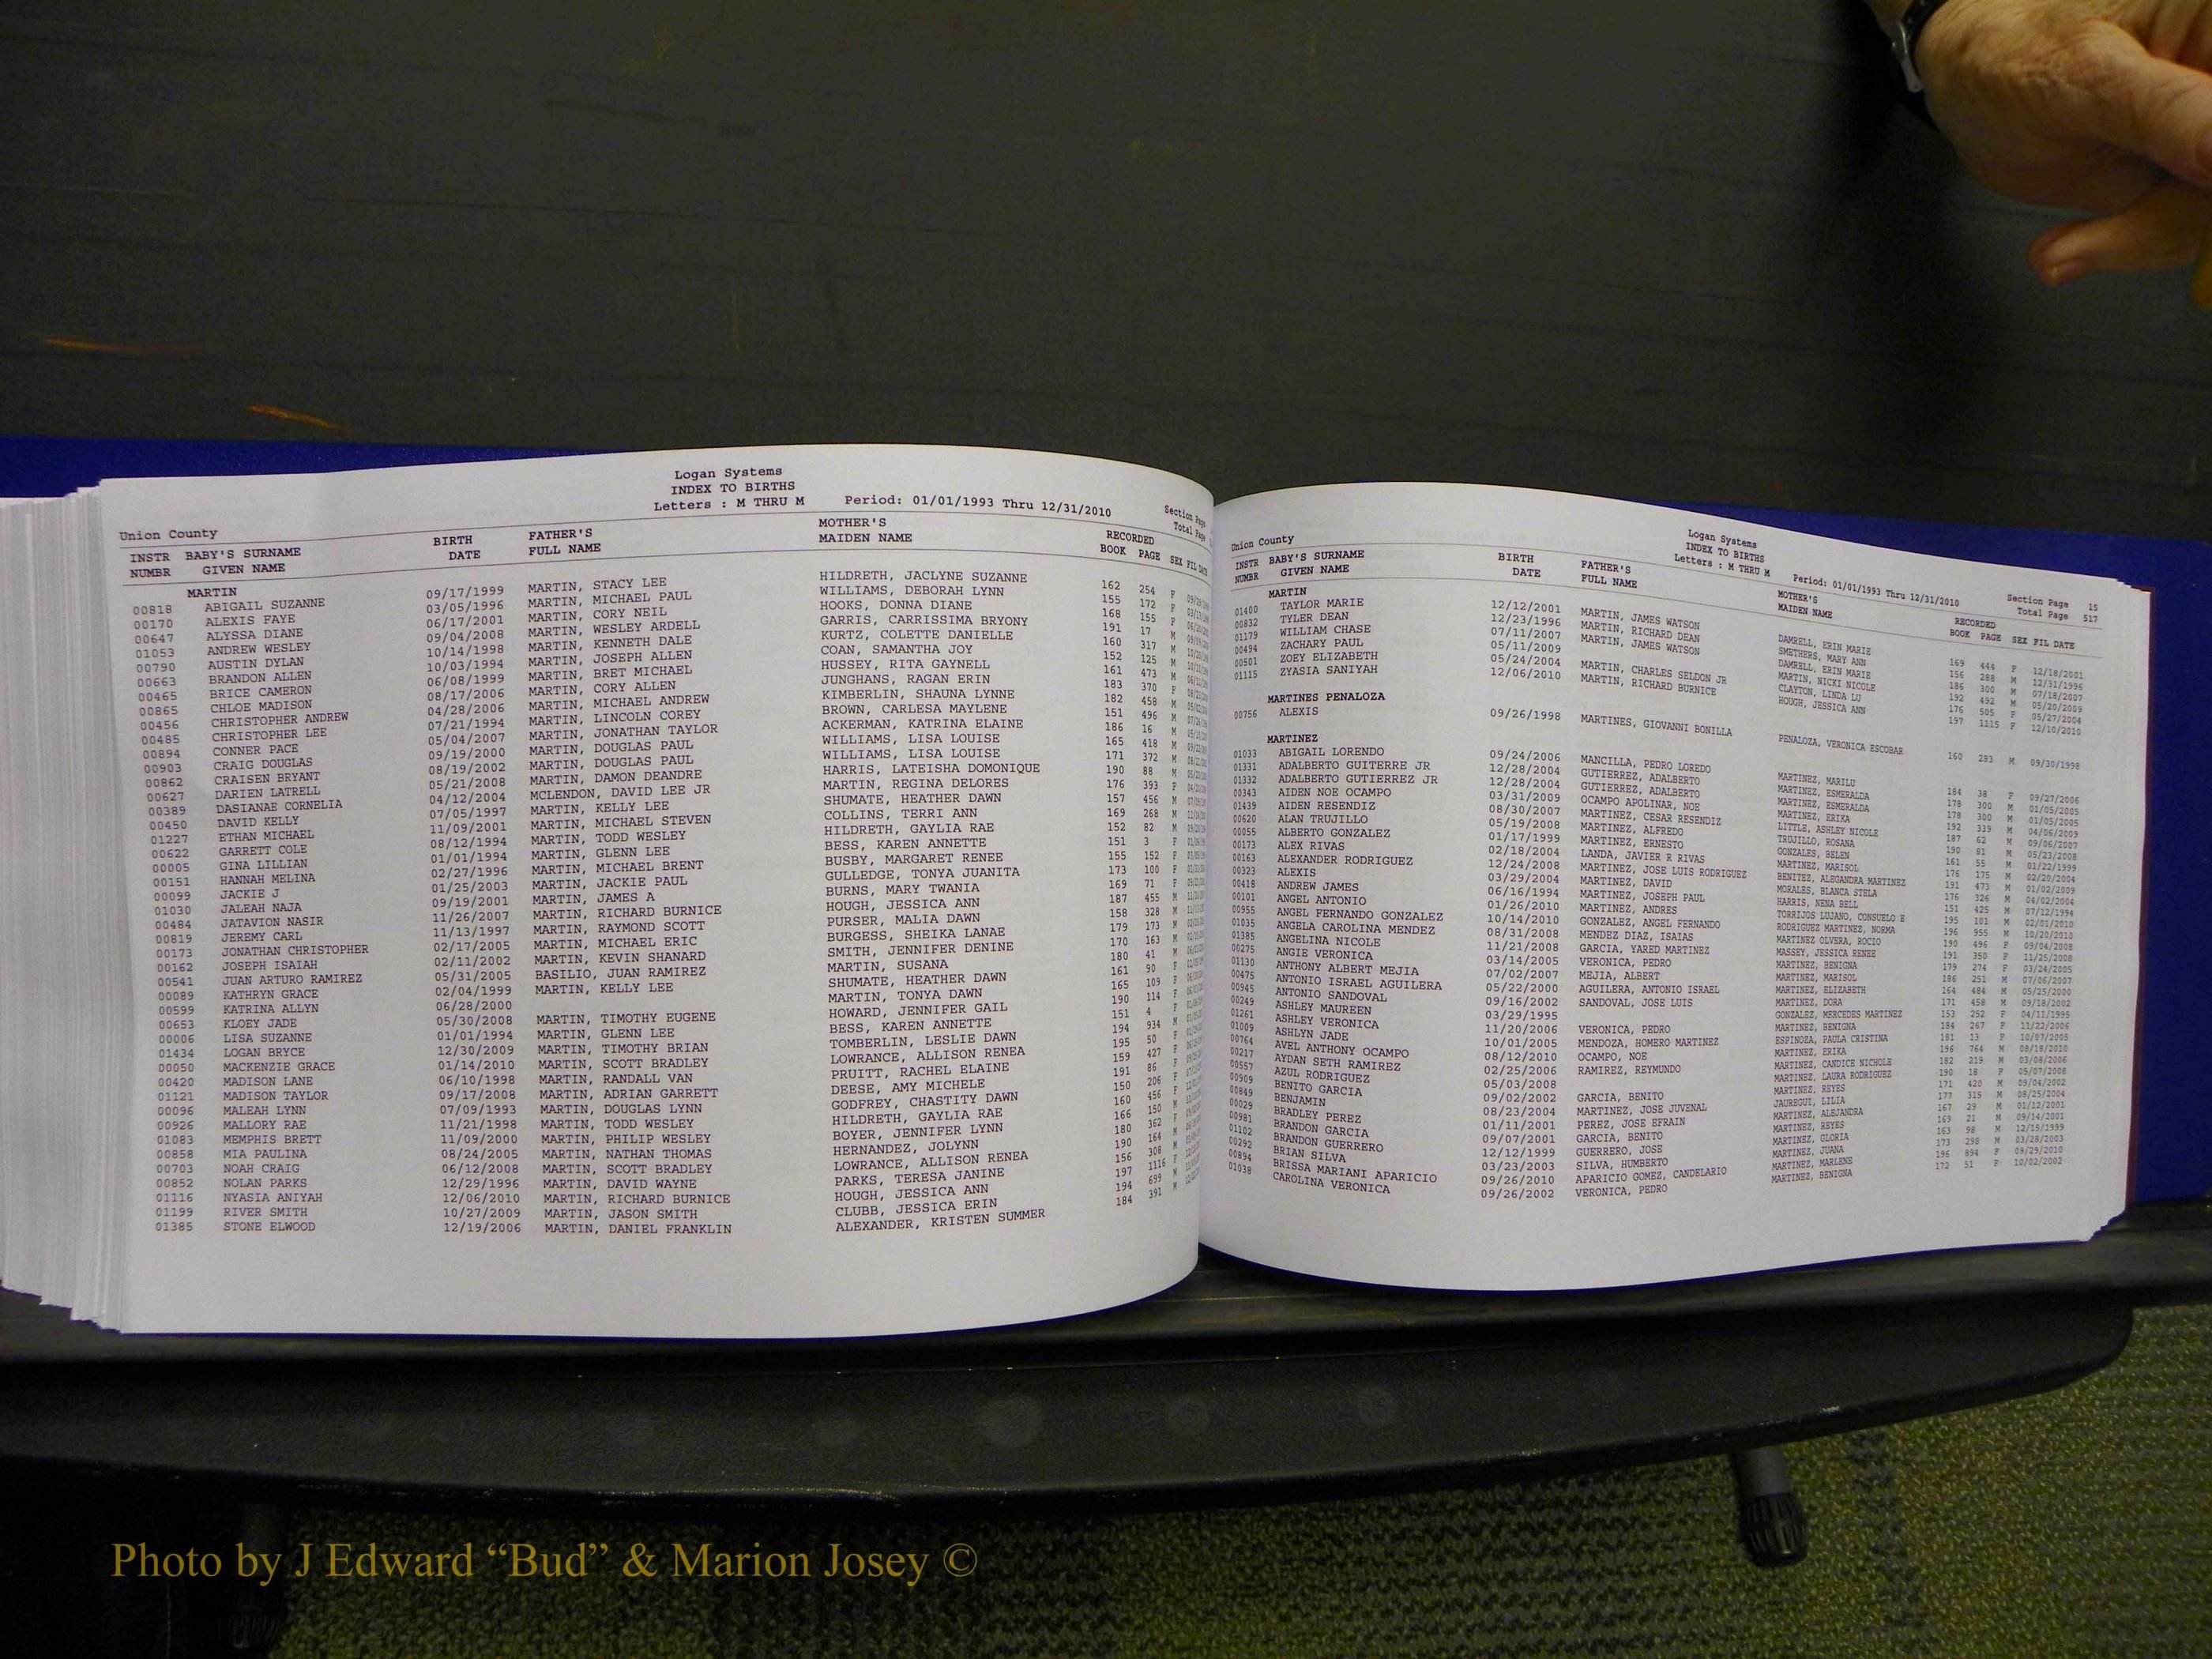 Logan Systems
INDEX TO BIRTHS
Letters : M THRU M Period: 01/01/1993 Thru 12/31/2010 Section Page
Total Page
Union County
INSTR BABY'S SURNAME BIRTH FATHER'S MOTHER'S RECORDED
NUMBR GIVEN NAME DATE FULL NAME MAIDEN NAME BOOK PAGE SEX FIL DATE
MARTIN
00818 ABIGAIL SUZANNE 09/17/1999 MARTIN, STACY LEE HILDRETH, JACLYNE SUZANNE 162 254 F
00170 ALEXIS FAYE 03/05/1996 MARTIN, MICHAEL PAUL WILLIAMS, DEBORAH LYNN 155 172 F
00647 ALYSSA DIANE 06/17/2001 MARTIN, CORY NEIL HOOKS, DONNA DIANE 168 155 F
01053 ANDREW WESLEY 09/04/2008 MARTIN, WESLEY ARDELL GARRIS, CARRISSIMA BRYONY 191 17 M
00790 AUSTIN DYLAN 10/14/1998 MARTIN, KENNETH DALE KURTZ, COLETTE DANIELLE 160 317 M
00663 BRANDON ALLEN 10/03/1994 MARTIN, JOSEPH ALLEN COAN, SAMANTHA JOY 152 125 M
00465 BRICE CAMERON 06/08/1999 MARTIN, BRET MICHAEL HUSSEY, RITA GAYNELL 161 473 M
00865 CHLOE MADISON 08/17/2006 MARTIN, CORY ALLEN JUNGHANS, RAGAN ERIN 183 370 F
00456 CHRISTOPHER ANDREW 04/28/2006 MARTIN, MICHAEL ANDREW KIMBERLIN, SHAUNA LYNNE 182 458 M
00485 CHRISTOPHER LEE 07/21/1994 MARTIN, LINCOLN COREY BROWN, CARLESA MAYLENE 151 496 M
00894 CONNER PACE 05/04/2007 MARTIN, JONATHAN TAYLOR ACKERMAN, KATRINA ELAINE 186 16 M
00903 CRAIG DOUGLAS 09/19/2000 MARTIN, DOUGLAS PAUL WILLIAMS, LISA LOUISE 165 418 M
00862 CRAISEN BRYANT 08/19/2002 MARTIN, DOUGLAS PAUL WILLIAMS, LISA LOUISE 171 372 M
00627 DARIEN LATRELL 05/21/2008 MARTIN, DAMON DEANDRE HARRIS, LATEISHA DOMONIQUE 190 88 M
00389 DASIANAE CORNELIA 04/12/2004 MCLENDON, DAVID LEE JR MARTIN, REGINA DELORES 176 393 F
00450 DAVID KELLY 07/05/1997 MARTIN, KELLY LEE SHUMATE, HEATHER DAWN 157 456 M
01227 ETHAN MICHAEL 11/09/2001 MARTIN, MICHAEL STEVEN COLLINS, TERRI ANN 169 268 M
00622 GARRETT COLE 08/12/1994 MARTIN, TODD WESLEY HILDRETH, GAYLIA RAE 152 82 M
00005 GINA LILLIAN 01/01/1994 MARTIN, GLENN LEE BESS, KAREN ANNETTE 151 3 F
00151 HANNAH MELINA 02/27/1996 MARTIN, MICHAEL BRENT BUSBY, MARGARET RENEE 155 152 F
00099 JACKIE J 01/25/2003 MARTIN, JACKIE PAUL GULLEDGE, TONYA JUANITA 173 100
01030 JALEAH NAJA 09/19/2001 MARTIN, JAMES A BURNS, MARY TWANIA 169 71 F
00484 JATAVION NASIR 11/26/2007 MARTIN, RICHARD BURNICE HOUGH, JESSICA ANN 187 455 M
00819 JEREMY CARL 11/13/1997 MARTIN, RAYMOND SCOTT PURSER, MALIA DAWN 158 328 M
00173 JONATHAN CHRISTOPHER 02/17/2005 MARTIN, MICHAEL ERIC BURGESS, SHEIKA LANAE 179 173 M
00162 JOSEPH ISAIAH 02/11/2002 MARTIN, KEVIN SHANARD SMITH, JENNIFER DENINE 170 163 M
00541 JUAN ARTURO RAMIREZ 05/31/2005 BASILIO, JUAN RAMIREZ MARTIN, SUSANA 180 41 M
00089 KATHRYN GRACE 02/04/1999 MARTIN, KELLY LEE SHUMATE, HEATHER DAWN 161 90 F
00599 KATRINA ALLYN 06/28/2000 MARTIN, TONYA DAWN 165 109 F
00653 KLOEY JADE 05/30/2008 MARTIN, TIMOTHY EUGENE HOWARD, JENNIFER GAIL 190 114 F
00006 LISA SUZANNE 01/01/1994 MARTIN, GLENN LEE BESS, KAREN ANNETTE 151 4 F
01434 LOGAN BRYCE 12/30/2009 MARTIN, TIMOTHY BRIAN TOMBERLIN, LESLIE DAWN 194 934 M
00050 MACKENZIE GRACE 01/14/2010 MARTIN, SCOTT BRADLEY LOWRANCE, ALLISON RENEA 195 50 F
00420 MADISON LANE 06/10/1998 MARTIN, RANDALL VAN PRUITT, RACHEL ELAINE 159 427 F
01121 MADISON TAYLOR 09/17/2008 MARTIN, ADRIAN GARRETT DEESE, AMY MICHELE 191 86 F
00096 MALEAH LYNN 07/09/1993 MARTIN, DOUGLAS LYNN GODFREY, CHASTITY DAWN 150 206 F
00926 MALLORY RAE 11/21/1998 MARTIN, TODD WESLEY HILDRETH, GAYLIA RAE 160 456 F
01083 MEMPHIS BRETT 11/09/2000 MARTIN, PHILIP WESLEY BOYER, JENNIFER LYNN 166 150 M
00858 MIA PAULINA 08/24/2005 MARTIN, NATHAN THOMAS HERNANDEZ, JOLYNN 180 362 F
00703 NOAH CRAIG 06/12/2008 MARTIN, SCOTT BRADLEY LOWRANCE, ALLISON RENEA 190 164 M
00852 NOLAN PARKS 12/29/1996 MARTIN, DAVID WAYNE PARKS, TERESA JANINE 156 308
01116 NYASIA ANIYAH 12/06/2010 MARTIN, RICHARD BURNICE HOUGH, JESSICA ANN 197 1116 F
01199 RIVER SMITH 10/27/2009 MARTIN, JASON SMITH CLUBB, JESSICA ERIN 194 699 M
01385 STONE ELWOOD 12/19/2006 MARTIN, DANIEL FRANKLIN ALEXANDER, KRISTEN SUMMER 184 391 M
Logan Systems
INDEX TO BIRTHS
Letters : M THRU M Period: 01/01/1993 Thru 12/31/2010 Section Page 15
Total Page 517
Union County
INSTR BABY'S SURNAME BIRTH FATHER'S MOTHER'S RECORDED
NUMBR GIVEN NAME DATE FULL NAME MAIDEN NAME BOOK PAGE SEX FIL DATE
MARTIN
01400 TAYLOR MARIE 12/12/2001 MARTIN, JAMES WATSON DAMRELL, ERIN MARIE 169 444 F 12/18/2001
00832 TYLER DEAN 12/23/1996 MARTIN, RICHARD DEAN SMETHERS, MARY ANN 156 288 M 12/31/1996
01179 WILLIAM CHASE 07/11/2007 MARTIN, JAMES WATSON DAMRELL, ERIN MARIE 186 300 M 07/18/2007
00494 ZACHARY PAUL 05/11/2009 MARTIN, NICKI NICOLE 192 492 M 05/20/2009
00501 ZOEY ELIZABETH 05/24/2004 MARTIN, CHARLES SELDON JR CLAYTON, LINDA LU 176 505 F 05/27/2004
01115 ZYASIA SANIYAH 12/06/2010 MARTIN, RICHARD BURNICE HOUGH, JESSICA ANN 197 1115 F 12/10/2010
MARTINES PENALOZA
00756 ALEXIS 09/26/1998 MARTINES, GIOVANNI BONILLA PENALOZA, VERONICA ESCOBAR 160 283 M 09/30/1998
MARTINEZ
01033 ABIGAIL LORENDO 09/24/2006 MANCILLA, PEDRO LOREDO MARTINEZ, MARILU 184 38 F 09/27/2006
01331 ADALBERTO GUITERRE JR 12/28/2004 GUTIERREZ, ADALBERTO MARTINEZ, ESMERALDA 178 300 M 01/05/2005
01332 ADALBERTO GUTIERREZ JR 12/28/2004 GUTIERREZ, ADALBERTO MARTINEZ, ESMERALDA 178 300 M 01/05/2005
00343 AIDEN NOE OCAMPO 03/31/2009 OCAMPO APOLINAR, NOE MARTINEZ, ERIKA 192 339 M 04/06/2009
01439 AIDEN RESENDIZ 08/30/2007 MARTINEZ, CESAR RESENDIZ LITTLE, ASHLEY NICOLE 187 62 M 09/06/2007
00620 ALAN TRUJILLO 05/19/2008 MARTINEZ, ALFREDO TRUJILLO, ROSANA 190 81 M 05/23/2008
00055 ALBERTO GONZALEZ 01/17/1999 MARTINEZ, ERNESTO GONZALES, BELEN 161 55 M 01/22/1999
00173 ALEX RIVAS 02/18/2004 LANDA, JAVIER R RIVAS MARTINEZ, MARISOL 176 175 M 02/20/2004
00163 ALEXANDER RODRIGUEZ 12/24/2008 MARTINEZ, JOSE LUIS RODRIGUEZ BENITEZ, ALEGANDRA MARTINEZ 191 473 M 01/02/2009
00323 ALEXIS 03/29/2004 MARTINEZ, DAVID MORALES, BLANCA STELA 176 326 M 04/02/2004
00418 ANDREW JAMES 06/16/1994 MARTINEZ, JOSEPH PAUL HARRIS, NENA BELL 151 425 M 07/12/1994
00101 ANGEL ANTONIO 01/26/2010 MARTINEZ, ANDRES TORRIJOS LUJANO, CONSUELO E 195 101 M 02/01/2010
00955 ANGEL FERNANDO GONZALEZ 10/14/2010 GONZALEZ, ANGEL FERNANDO RODRIGUEZ MARTINEZ, NORMA 196 955 M 10/20/2010
01035 ANGELA CAROLINA MENDEZ 08/31/2008 MENDEZ DIAZ, ISAIAS MARTINEZ OLVERA, ROCIO 190 496 F 09/04/2008
01385 ANGELINA NICOLE 11/21/2008 GARCIA, YARED MARTINEZ MASSEY, JESSICA RENEE 191 350 F 11/25/2008
00275 ANGIE VERONICA 03/14/2005 VERONICA, PEDRO MARTINEZ, BENIGNA 179 274 F 03/24/2005
01130 ANTHONY ALBERT MEJIA 07/02/2007 MEJIA, ALBERT MARTINEZ, MARISOL 186 251 M 07/06/2007
00475 ANTONIO ISRAEL AGUILERA 05/22/2000 AGUILERA, ANTONIO ISRAEL MARTINEZ, ELIZABETH 164 484 M 05/25/2000
00945 ANTONIO SANDOVAL 09/16/2002 SANDOVAL, JOSE LUIS MARTINEZ, DORA 171 458 M 09/18/2002
00249 ASHLEY MAUREEN 03/29/1995 GONZALEZ, MERCEDES MARTINEZ 153 252 F 04/11/1995
01261 ASHLEY VERONICA 11/20/2006 VERONICA, PEDRO MARTINEZ, BENIGNA 184 267 F 11/22/2006
01009 ASHLYN JADE 10/01/2005 MENDOZA, HOMERO MARTINEZ ESPINOZA, PAULA CRISTINA 181 13 F 10/07/2005
00764 AVEL ANTHONY OCAMPO 08/12/2010 OCAMPO, NOE MARTINEZ, ERIKA 196 764 M 08/18/2010
00217 AYDAN SETH RAMIREZ 02/25/2006 RAMIREZ, REYMUNDO MARTINEZ, CANDICE NICHOLE 182 219 M 03/08/2006
00557 AZUL RODRIGUEZ 05/03/2008 MARTINEZ, LAURA RODRIGUEZ 190 18 F 05/07/2008
00909 BENITO GARCIA 09/02/2002 GARCIA, BENITO MARTINEZ, REYES 171 420 M 09/04/2002
00849 BENJAMIN 08/23/2004 MARTINEZ, JOSE JUVENAL JAUREGUI, LILIA 177 315 M 08/25/2004
00029 BRADLEY PEREZ 01/11/2001 PEREZ, JOSE EFRAIN MARTINEZ, ALEJANDRA 167 29 M 01/12/2001
00981 BRANDON GARCIA 09/07/2001 GARCIA, BENITO MARTINEZ, REYES 169 21 M 09/14/2001
01102 BRANDON GUERRERO 12/12/1999 GUERRERO, JOSE MARTINEZ, GLORIA 163 98 M 12/15/1999
00292 BRIAN SILVA 03/23/2003 SILVA, HUMBERTO MARTINEZ, JUANA 173 298 M 03/28/2003
00894 BRISSA MARIANI APARICIO 09/26/2010 APARICIO GOMEZ, CANDELARIO MARTINEZ, MARLENE 196 894 F 09/29/2010
01038 CAROLINA VERONICA 09/26/2002 VERONICA, PEDRO MARTINEZ, BENIGNA 172 51 F 10/02/2002
Photo by J Edward “Bud” & Marion Josey ©